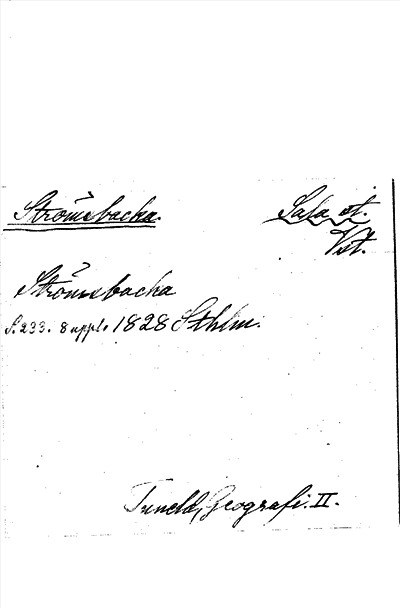 Strömsbacka.
Sala st.
Vst.
Strömsbacka
S. 233. 8 uppl. 1828 Sthlm.
Tuneld, Geografi. II.